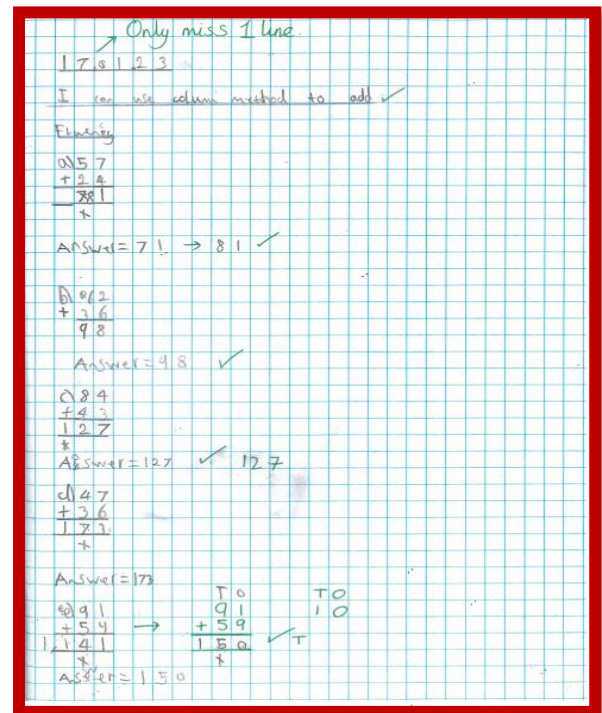 Only miss 1 line.
17.01.23
I can use column method to add ✓
Fluency
a) 57
+ 24
81
Answer = 71 → 81 ✓
b) 62
+ 36
98
Answer = 98 ✓
c) 84
+ 43
127
Answer = 127 ✓ 127
d) 47
+ 36
173
Answer = 173
T O T O
e) 91 → 91 10
+ 59 ✓ T
1,141 150
Answer = 150